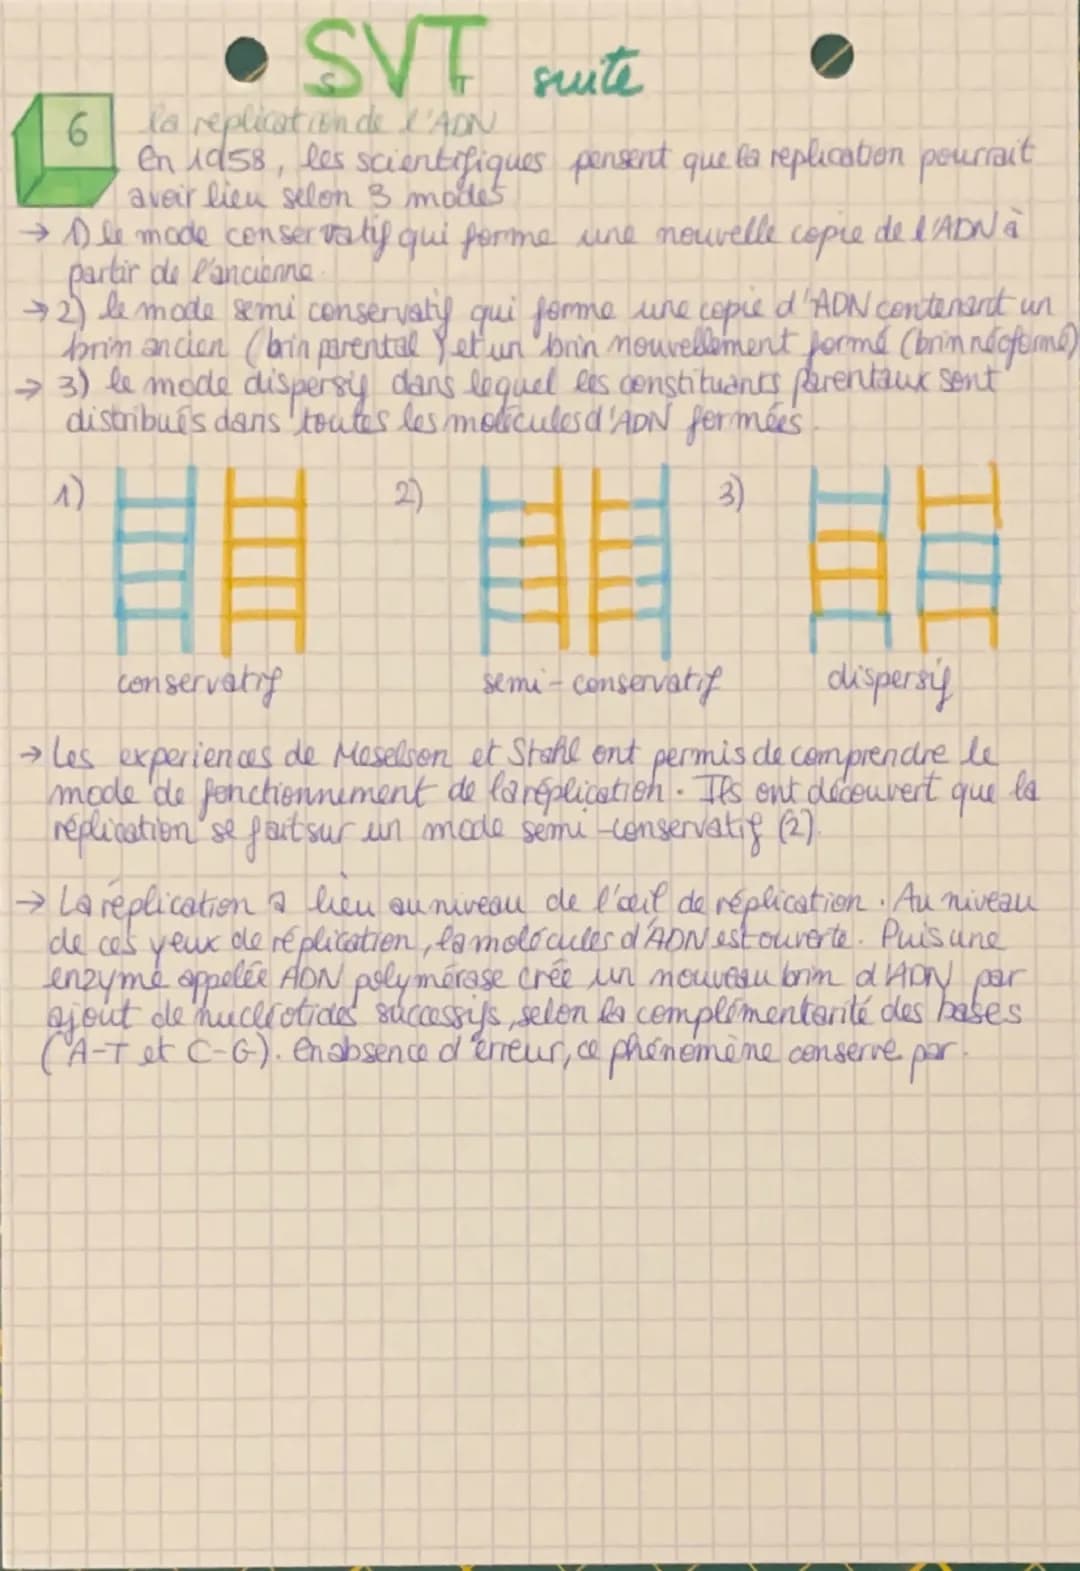 SVT suite
S T
6
la replication de l'ADN
En 1958, les scientifiques pensent que la replication pourrait
avoir lieu selon 3 modes
→ 1) le mode conservatif qui forme une nouvelle copie de l'ADN à
partir de l'ancienne.
→ 2) le mode semi conservatif qui forme une copie d'ADN contenant un
brin ancien (brin parental) et un brin nouvellement formé (brin néoformé)
→ 3) le mode dispersif dans lequel les constituants parentaux sont
distribués dans toutes les molécules d'ADN formées.
1) 2) 3)
conservatif semi-conservatif dispersif
→ Les experiences de Meselson et Stahl ont permis de comprendre le
mode de fonctionnement de la réplication. Ils ont découvert que la
réplication se fait sur un mode semi-conservatif (2).
→ La réplication a lieu au niveau de l'œil de réplication. Au niveau
de ces yeux de réplication, la molécules d'ADN est ouverte. Puis une
enzyme appelée ADN polymérase crée un nouveau brin d'ADN par
ajout de nucléotides successifs, selon la complémentarité des bases
(A-T et C-G). En absence d'erreur, ce phénomène conserve par.